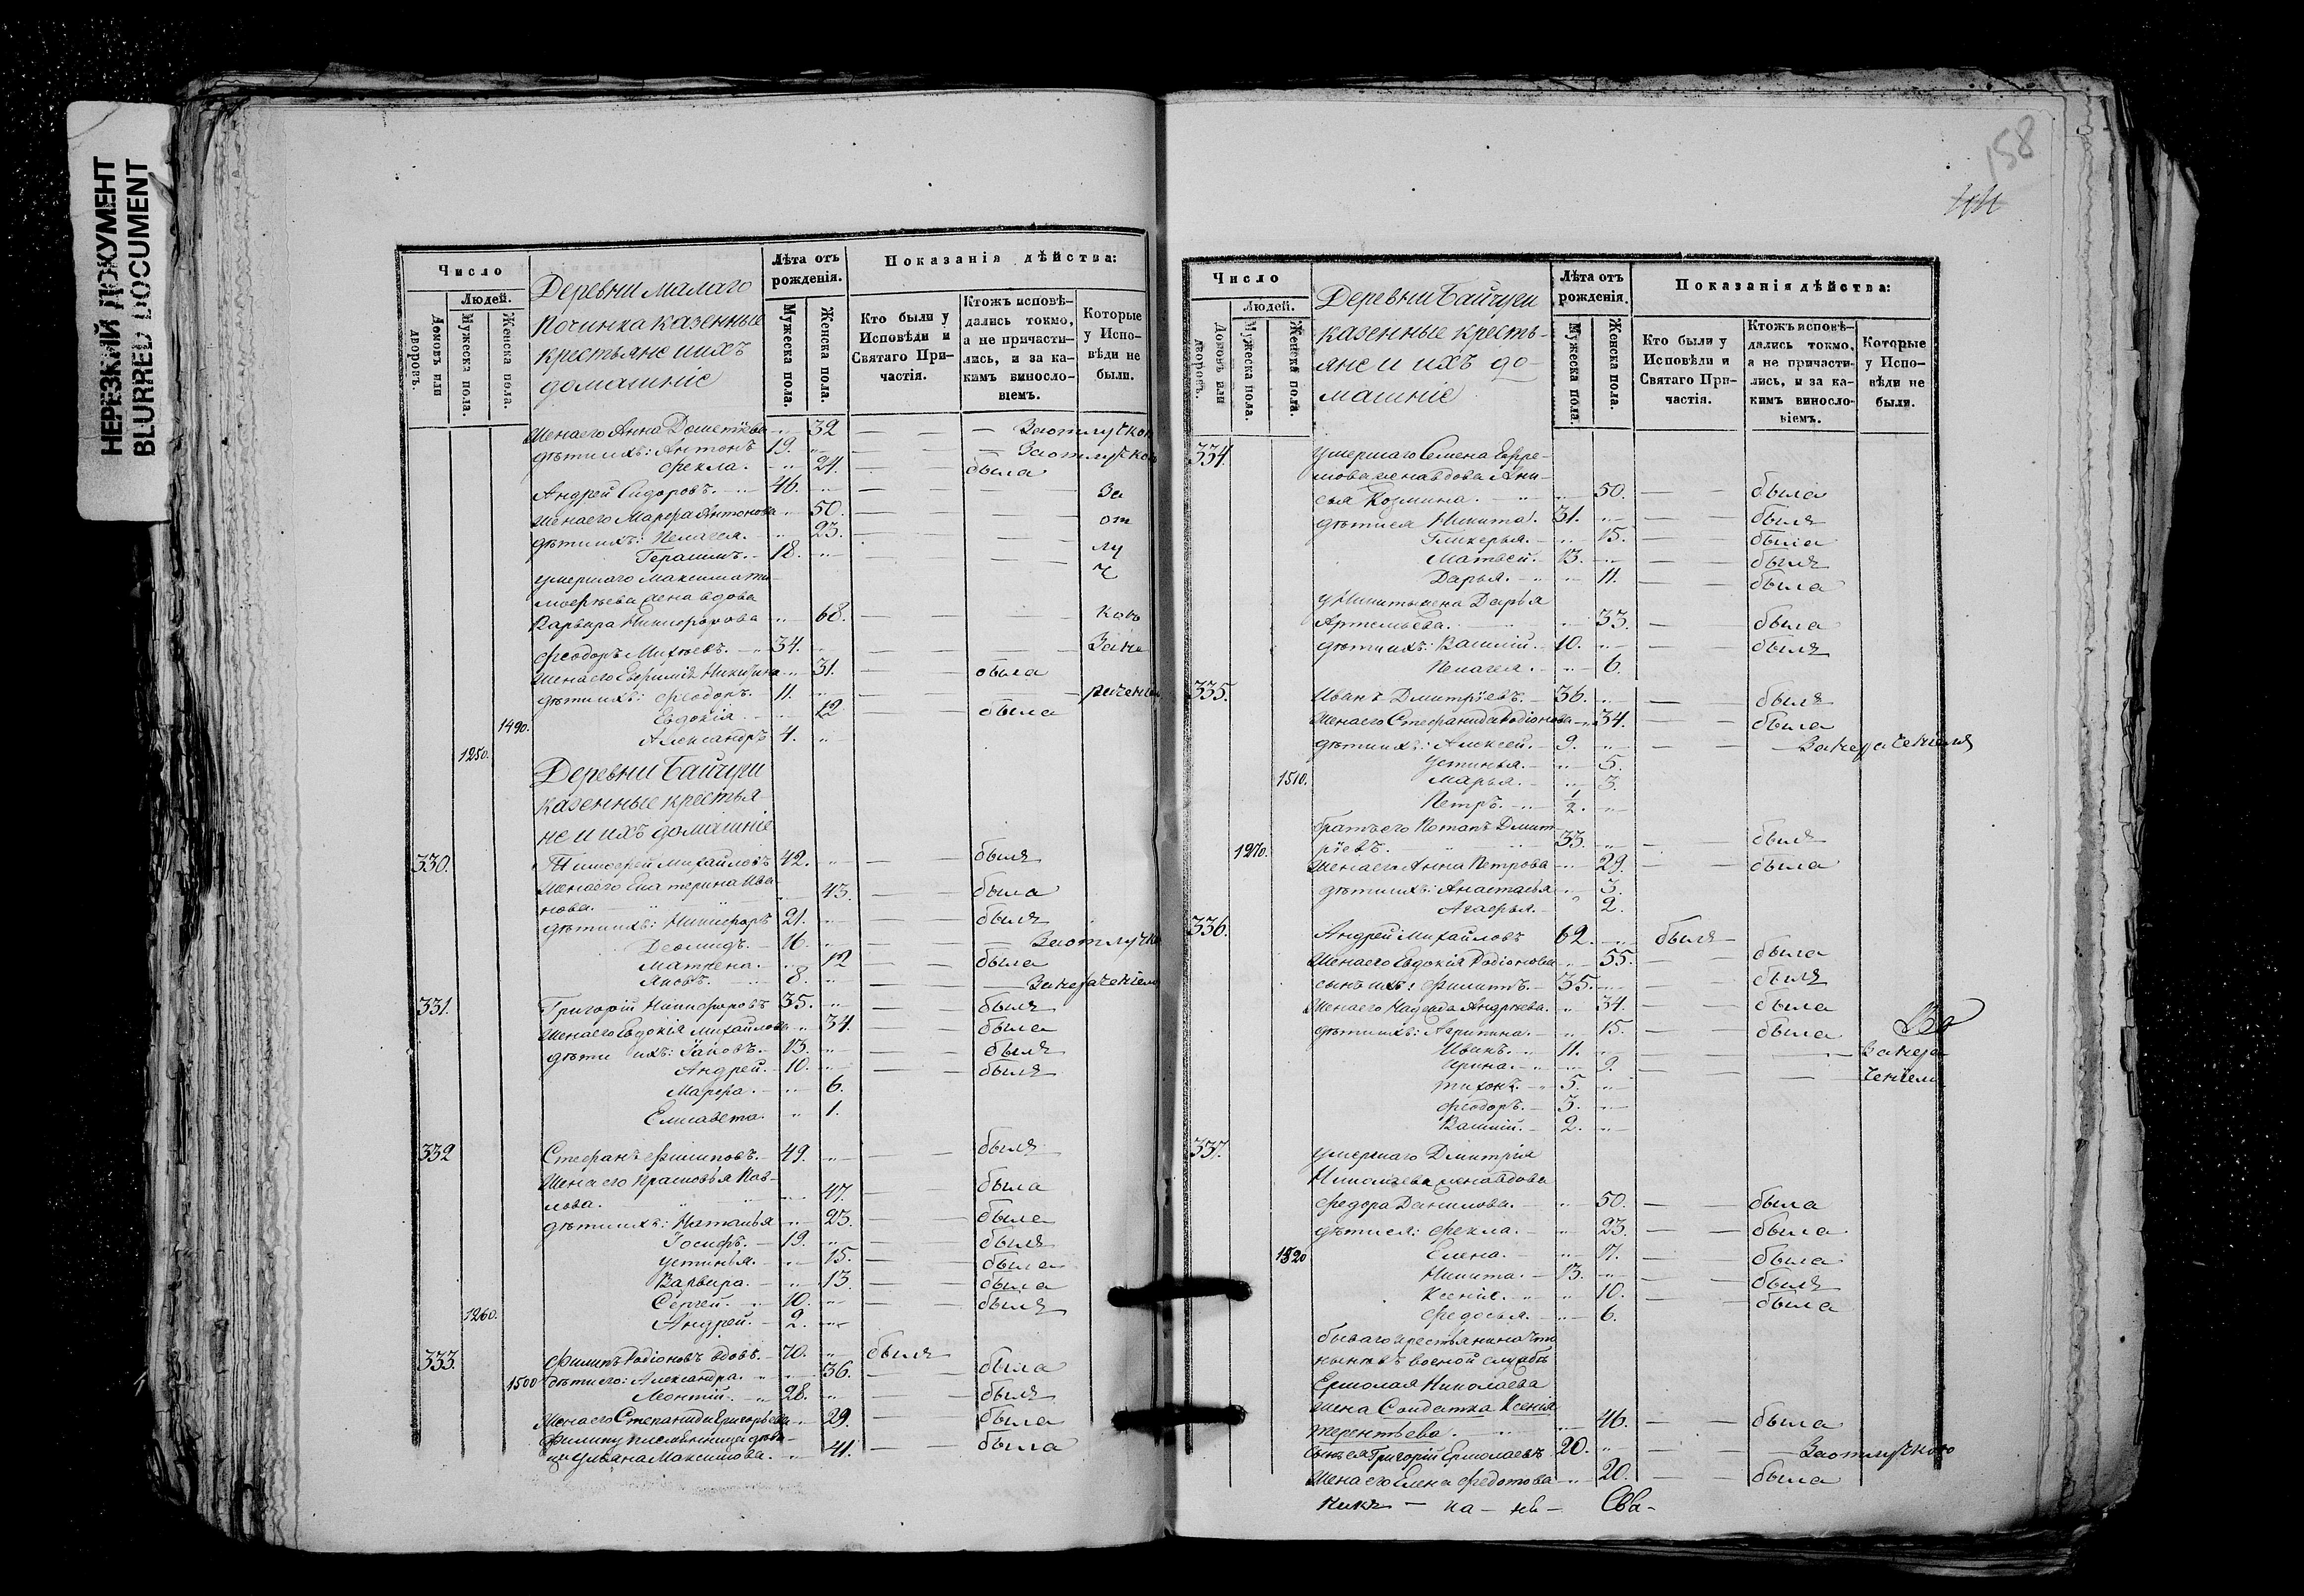 НЕРЕЗКИЙ ДОКУМЕНТ
BLURRED DOCUMENT
Число
Людей.
Домовъ или дворовъ.
Мужеска пола.
Женска пола.
Деревни малаго
починка казенные
крестьяне и ихъ
домашніе
Лѣта отъ рожденія.
Мужеска пола.
Женска пола.
Показанія дѣйства:
Кто были у Исповѣди и Святаго Причастія.
Ктожъ исповѣ-
дались токмо,
а не причасти-
лись, и за ка-
кимъ винносло-
віемъ.
Которые
у Испо-
вѣди не
были.
Жена его Анна Дометіева „ 32 — — — За отлучкою
дѣти ихъ: Антонъ 19. „ — За отлучкою
Фекла. „ 24. — была
Андрей Сидоровъ. 46. „ — — За
Жена его Марфа Антонова „ 50. — — от
дѣти ихъ: Пелагея. „ 23. — — лу
Герасимъ. 18. „ — — ч
умершаго Максима Ти-
моѳеева жена вдова
Варвара Никифорова „ 68. — — кою
Феодоръ Михеевъ. 34. „ — — За не
Жена его Евфимія Никитина „ 31. — была
дѣти ихъ: Феодоръ. 11. „ — — раченіем
Евдокія. „ 12 — была
1490.
Александръ 4. „
1250.
Деревни Байчуги
казенные крестья-
не и ихъ домашніе
330. Тимофей Михайловъ 42. „ — — былъ
Жена его Екатерина Ива-
нова. „ 43. — — была
дѣти ихъ: Никифоръ 21. „ — — былъ
Деомидъ. 16. „ — — За отлучко
Матрена. „ 12 — — была
Яковъ. 8. „ — — За нераченіем
331. Григорій Никифоровъ 35. „ — — былъ
Жена его Евдокія Михайлова „ 34. — — была
дѣти ихъ: Іаковъ. 13. „ — — былъ
Андрей. 10. „ — — былъ
Марфа. „ 6.
Елисавета. „ 1.
332 Стефанъ Филиповъ. 49. „ — — былъ
Жена его Прасковья Пав-
лова. „ 47. — — была
дѣти ихъ: Наталья „ 23. — — была
Іосифъ. 19. „ — — былъ
Устинья. „ 15. — — была
Варвара. „ 13. — — была
Сергей. 10. „ — — былъ
1260. Андрей. 2. „
333. Филипъ Родіоновъ вдовъ. 70. „ былъ
1500 дѣти его: Александра. „ 36. — была
Леонтій. 28. „ — былъ
Жена его Степанида Григорьева „ 29. — была
Филипу племянница дѣви-
ца Ульяна Максимова. „ 41. — была
158
Число
Людей.
Домовъ или дворовъ.
Мужеска пола.
Женска пола.
Деревни Байчуги
казенные кресть-
яне и ихъ до-
машніе
Лѣта отъ рожденія.
Мужеска пола.
Женска пола.
Показанія дѣйства:
Кто были у Исповѣди и Святаго Причастія.
Ктожъ исповѣ-
дались токмо,
а не причасти-
лись, и за ка-
кимъ винносло-
віемъ.
Которые
у Испо-
вѣди не
были.
334. умершаго Семена Ефре-
мова жена вдова Ани-
сья Козмина. „ 50. — — была
дѣти ея Никита. 31. „ — — былъ
Гликерья. „ 15. — — была
Матвей. 13. „ — — былъ
Дарья. „ 11. — — была
у Никиты жена Дарья
Артемьева. „ 33. — — была
дѣти ихъ: Василій. 10. „ — — былъ
Пелагея. „ 6.
335. Иванъ Дмитріевъ. 36. „ — — былъ
Жена его Стефанида Родіонова „ 34. — — была
дѣти ихъ: Алексей. 9. „ — — За нераченіемъ
Устинья. „ 5.
1510. Марья. „ 3.
Петръ. 1/2. „
братъ его Потапъ Дмит-
1270. ріевъ. 33. „ — — былъ
Жена его Анна Петрова „ 29. — — была
дѣти ихъ: Анастасья „ 3.
Агафья. „ 2.
336. Андрей Михайловъ 62. „ былъ
Жена его Евдокія Родіонова „ 55. — была
сынъ ихъ: Филипъ. 35. „ — былъ
Жена его Надежда Андреева. „ 34. — — была
дѣти ихъ: Агрипина. „ 15. — — была
Иванъ. 11. „ — — За нера-
Ирина. „ 9. — — ченіем
Тихонъ. 5. „
Феодоръ. 3. „
Василій. 2. „
337. умершаго Дмитрія
Николаева жена вдова
Федора Данилова. „ 50. — — была
дѣти ея: Фекла. „ 23. — — была
1520 Елена. „ 17. — — была
Никита. 13. „ — — былъ
Ксенія. „ 10. — — была
Федосья. „ 6.
бываго крестьянина что
нынѣ въ военой службѣ
Ермолая Николаева
Жена Солдатка Ксенія
Терентьева. „ 46. — — была
Сынъ ея Григорій Ермолаевъ 20. „ — — За отлучкою
Жена его Елена Федотова „ 20. — — была